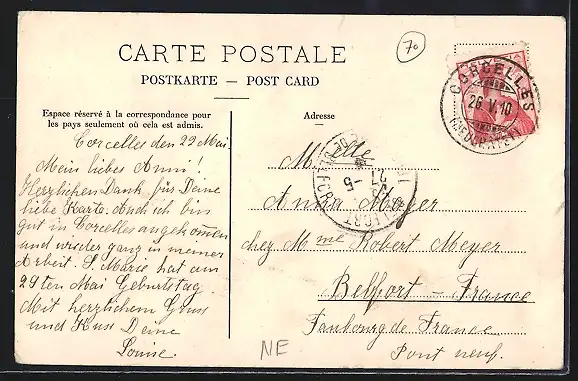 CARTE POSTALE
POSTKARTE — POST CARD
70
CORCELLES
26.V.10
(NEUCHATEL)
Espace réservé à la correspondance pour
les pays seulement où cela est admis.
Adresse
Corcelles den 22 Mai.
Mein liebes Anni!
Herzlichen Dank für Deine
liebe Karte. Auch ich bin
gut in Corcelles angekommen
und wieder ganz in meiner
Arbeit. S. Marie hat am
29ten Mai Geburtstag.
Mit herzlichem Gruss
und Kuss Deine
Louise.
Mlle
Anna Meyer
chez Mme Robert Meyer
Belfort – France
Faubourg de France
Pont neuf.
BELFORT
NE